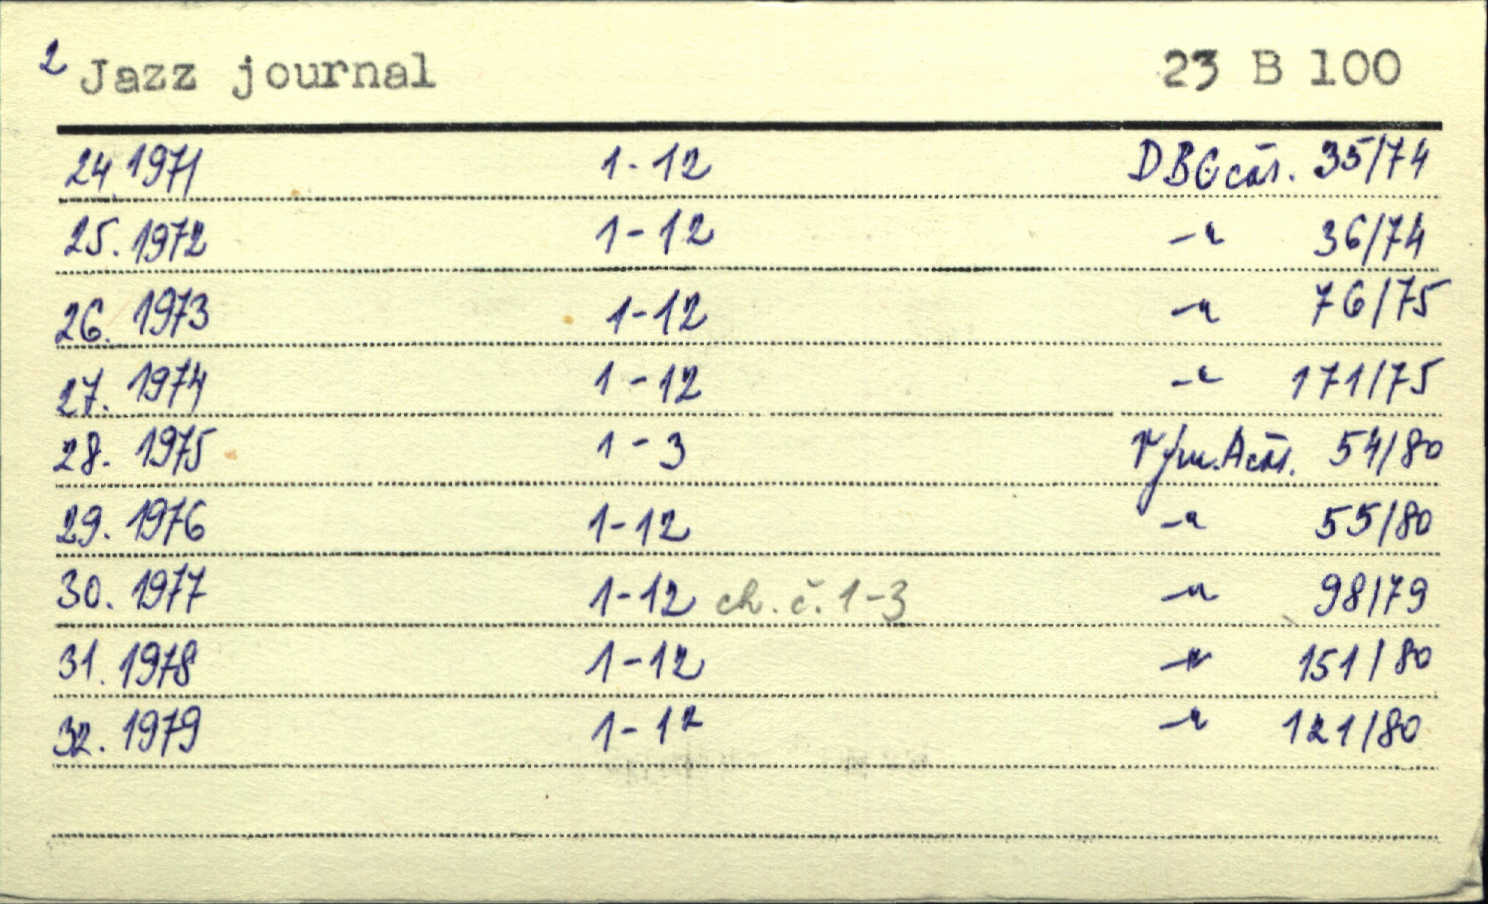 2 Jazz journal 23 B 100
24. 1971 1-12 DBG čas. 35/74
25. 1972 1-12 -"- 36/74
26. 1973 1-12 -"- 76/75
27. 1974 1-12 -"- 171/75
28. 1975 1-3 čas. 54/80
29. 1976 1-12 -"- 55/80
30. 1977 1-12 ch. č. 1-3 -"- 98/79
31. 1978 1-12 -"- 151/80
32. 1979 1-12 -"- 121/80